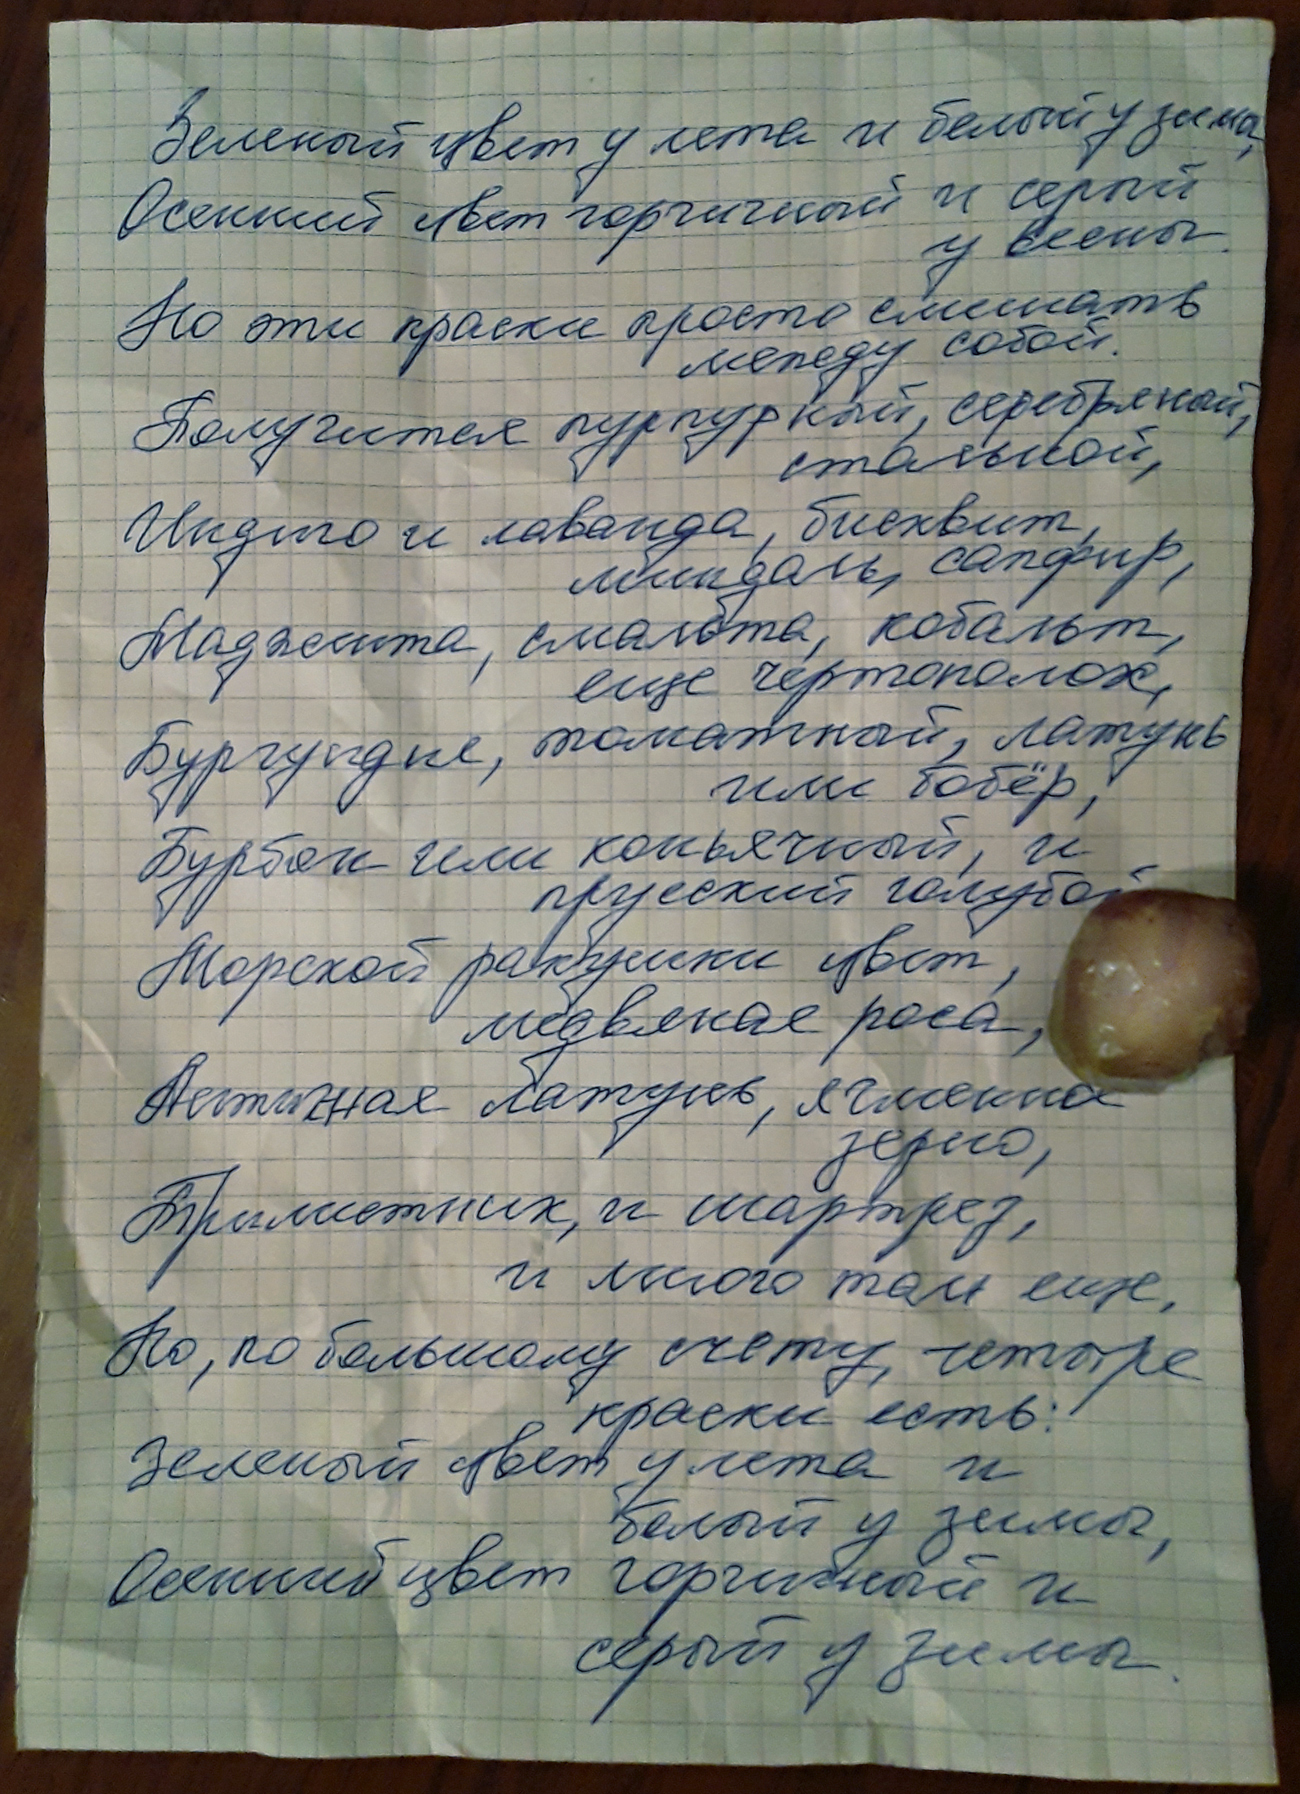 Зеленый цвет у лета и белый у зимы,
Осенний цвет горчичный и серый
у весны.
Но эти краски просто смешать
между собой.
Получится пурпурный, серебряный,
стальной,
Индиго и лаванда, бисквит,
миндаль, сапфир,
Маджента, смальта, кобальт,
еще чертополох,
Бургундие, томатный, латунь
или бобёр,
Бурбон или коньячный, и
прусский голубой
Морской ракушки цвет,
медвяная роса,
Античная латунь, ячменное
зерно,
Трилистник, и шартрез,
и много там еще,
Но, по большому счету, четыре
краски есть:
Зеленый цвет у лета и
белый у зимы,
Осенний цвет горчичный и
серый у зимы.